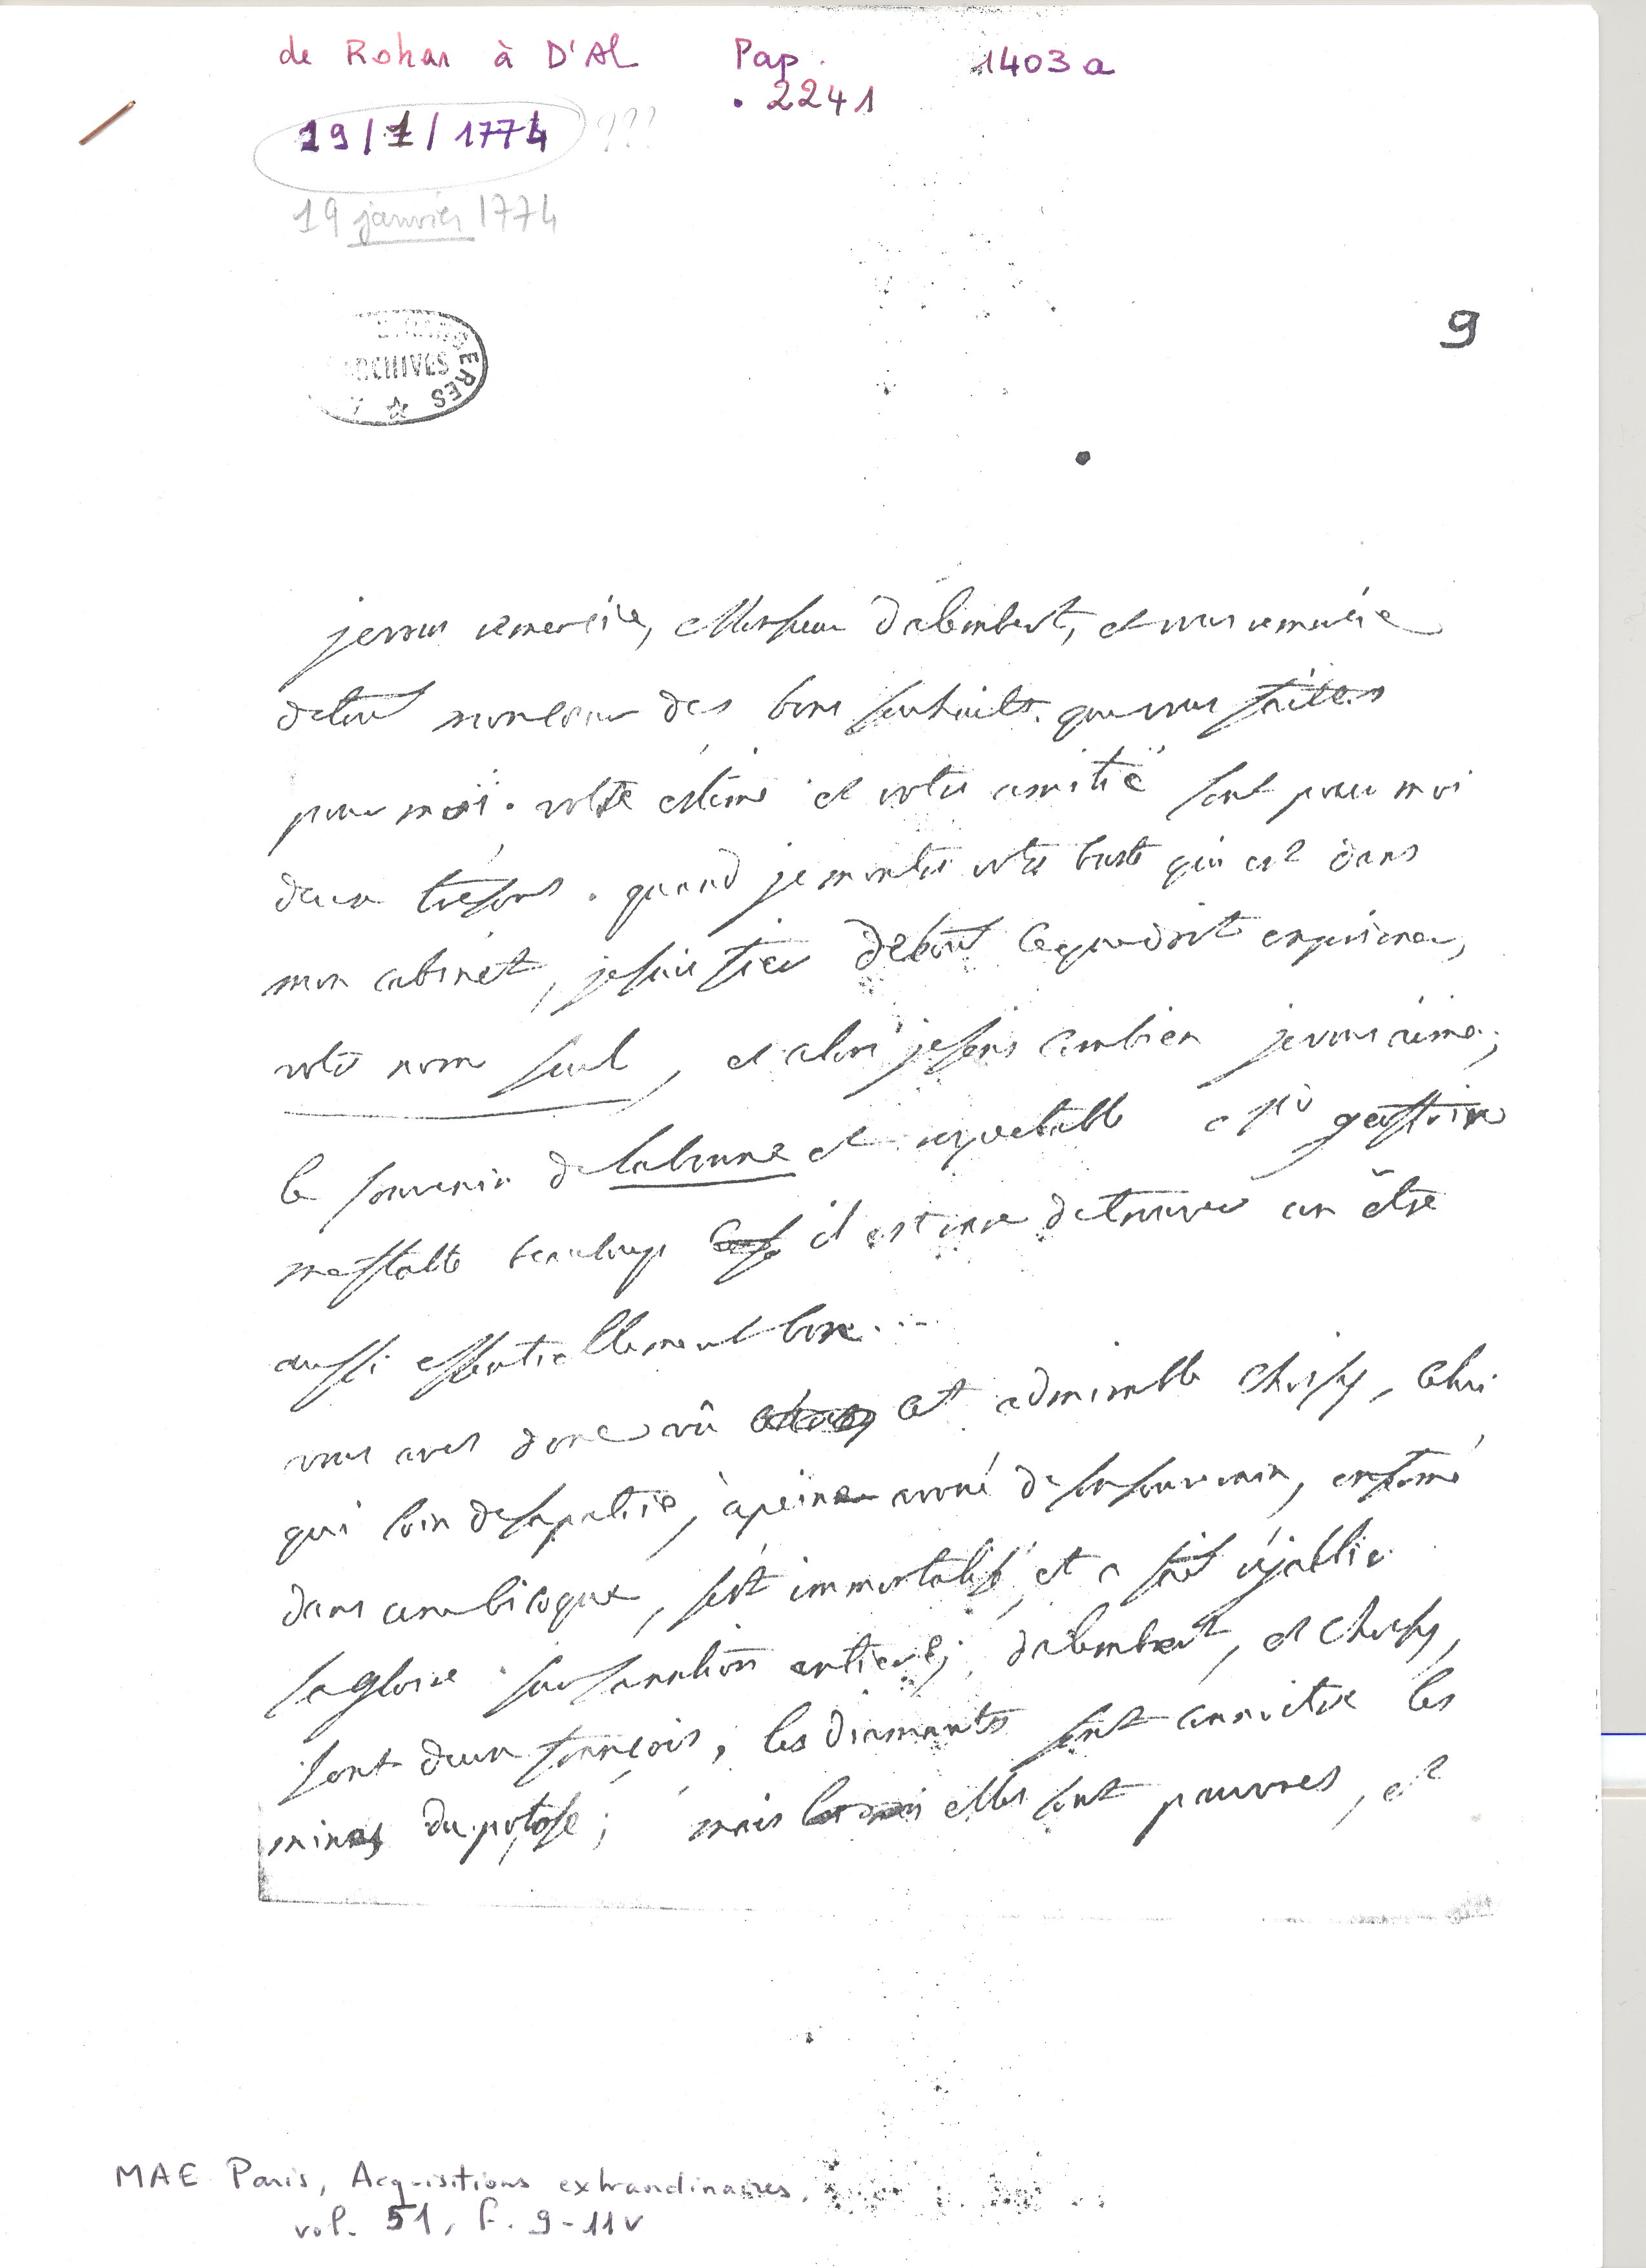 de Rohan à D'Al Pap. 1403a
. 2241
19/1/1774 ???
19 janvier 1774
ETRANGERES
ARCHIVES
9
je vous remercie, Monsieur dalembert, et vous remercie
de tout mon cœur des bons souhaits que vous faittes
pour moi. votre éstime et votre amitié sont pour moi
deux trésors. quand je montre votre buste qui est dans
mon cabinet, je suis fier de tout ce que doit exprimer
votre nom seul, et alors je sens combien je vous aime;
le souvenir de la bonne et respectable geoffrin
me flatte beaucoup il est rare de trouver un être
aussi essentiellement bon...
vous avez donc vû cet admirable choisy, celui
qui loin de sa patrie, à peine avoué de son souverain, enfermé
dans une bicoque, s'est immortalisé, et a fait rejaillir
sa gloire sur sa nation entiere; dalembert, et choisy,
sont deux françois, les diamants sont au notre les
mines du potose; mais elles sont pauvres, et
MAE Paris, Acquisitions extraordinaires,
vol. 51, f. 9-11v